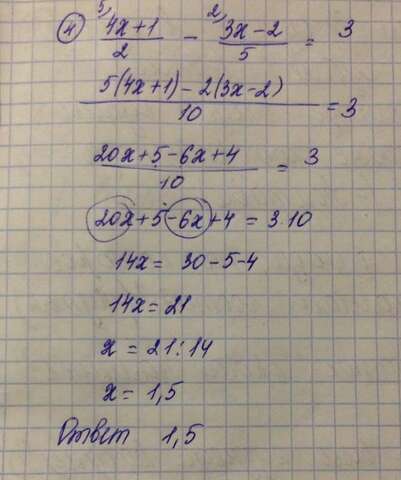 ④ ⁵⁾(4x+1)/2 - ²⁾(3x-2)/5 = 3
(5(4x+1)-2(3x-2))/10 = 3
(20x+5-6x+4)/10 = 3
20x+5-6x+4 = 3·10
14x = 30-5-4
14x = 21
x = 21:14
x = 1,5
Ответ 1,5